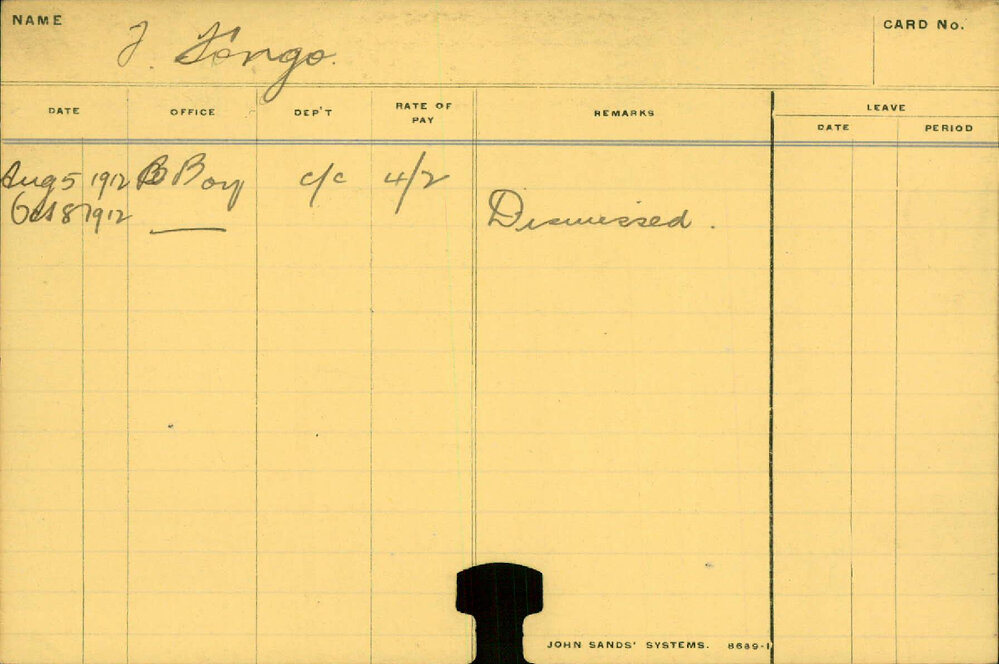 NAME
CARD No.
DATE OFFICE DEP'T RATE OF PAY REMARKS LEAVE
DATE PERIOD
Aug 5 1912 Boy c/c 4/2
Oct 8 1912 Dismissed.
JOHN SANDS' SYSTEMS. 8689-1